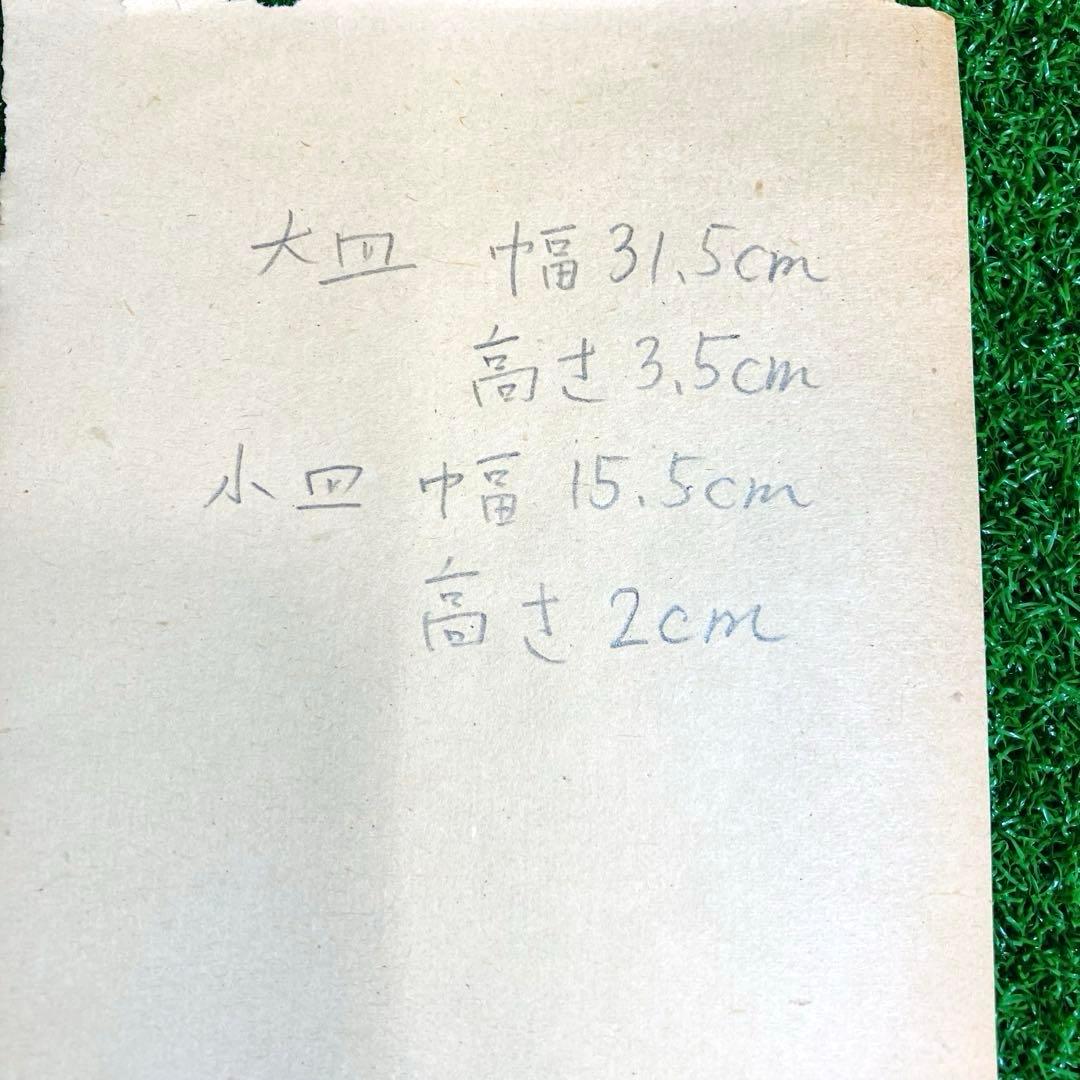 大皿 巾幅 31.5cm
高さ 3.5cm
小皿 巾幅 15.5cm
高さ 2cm